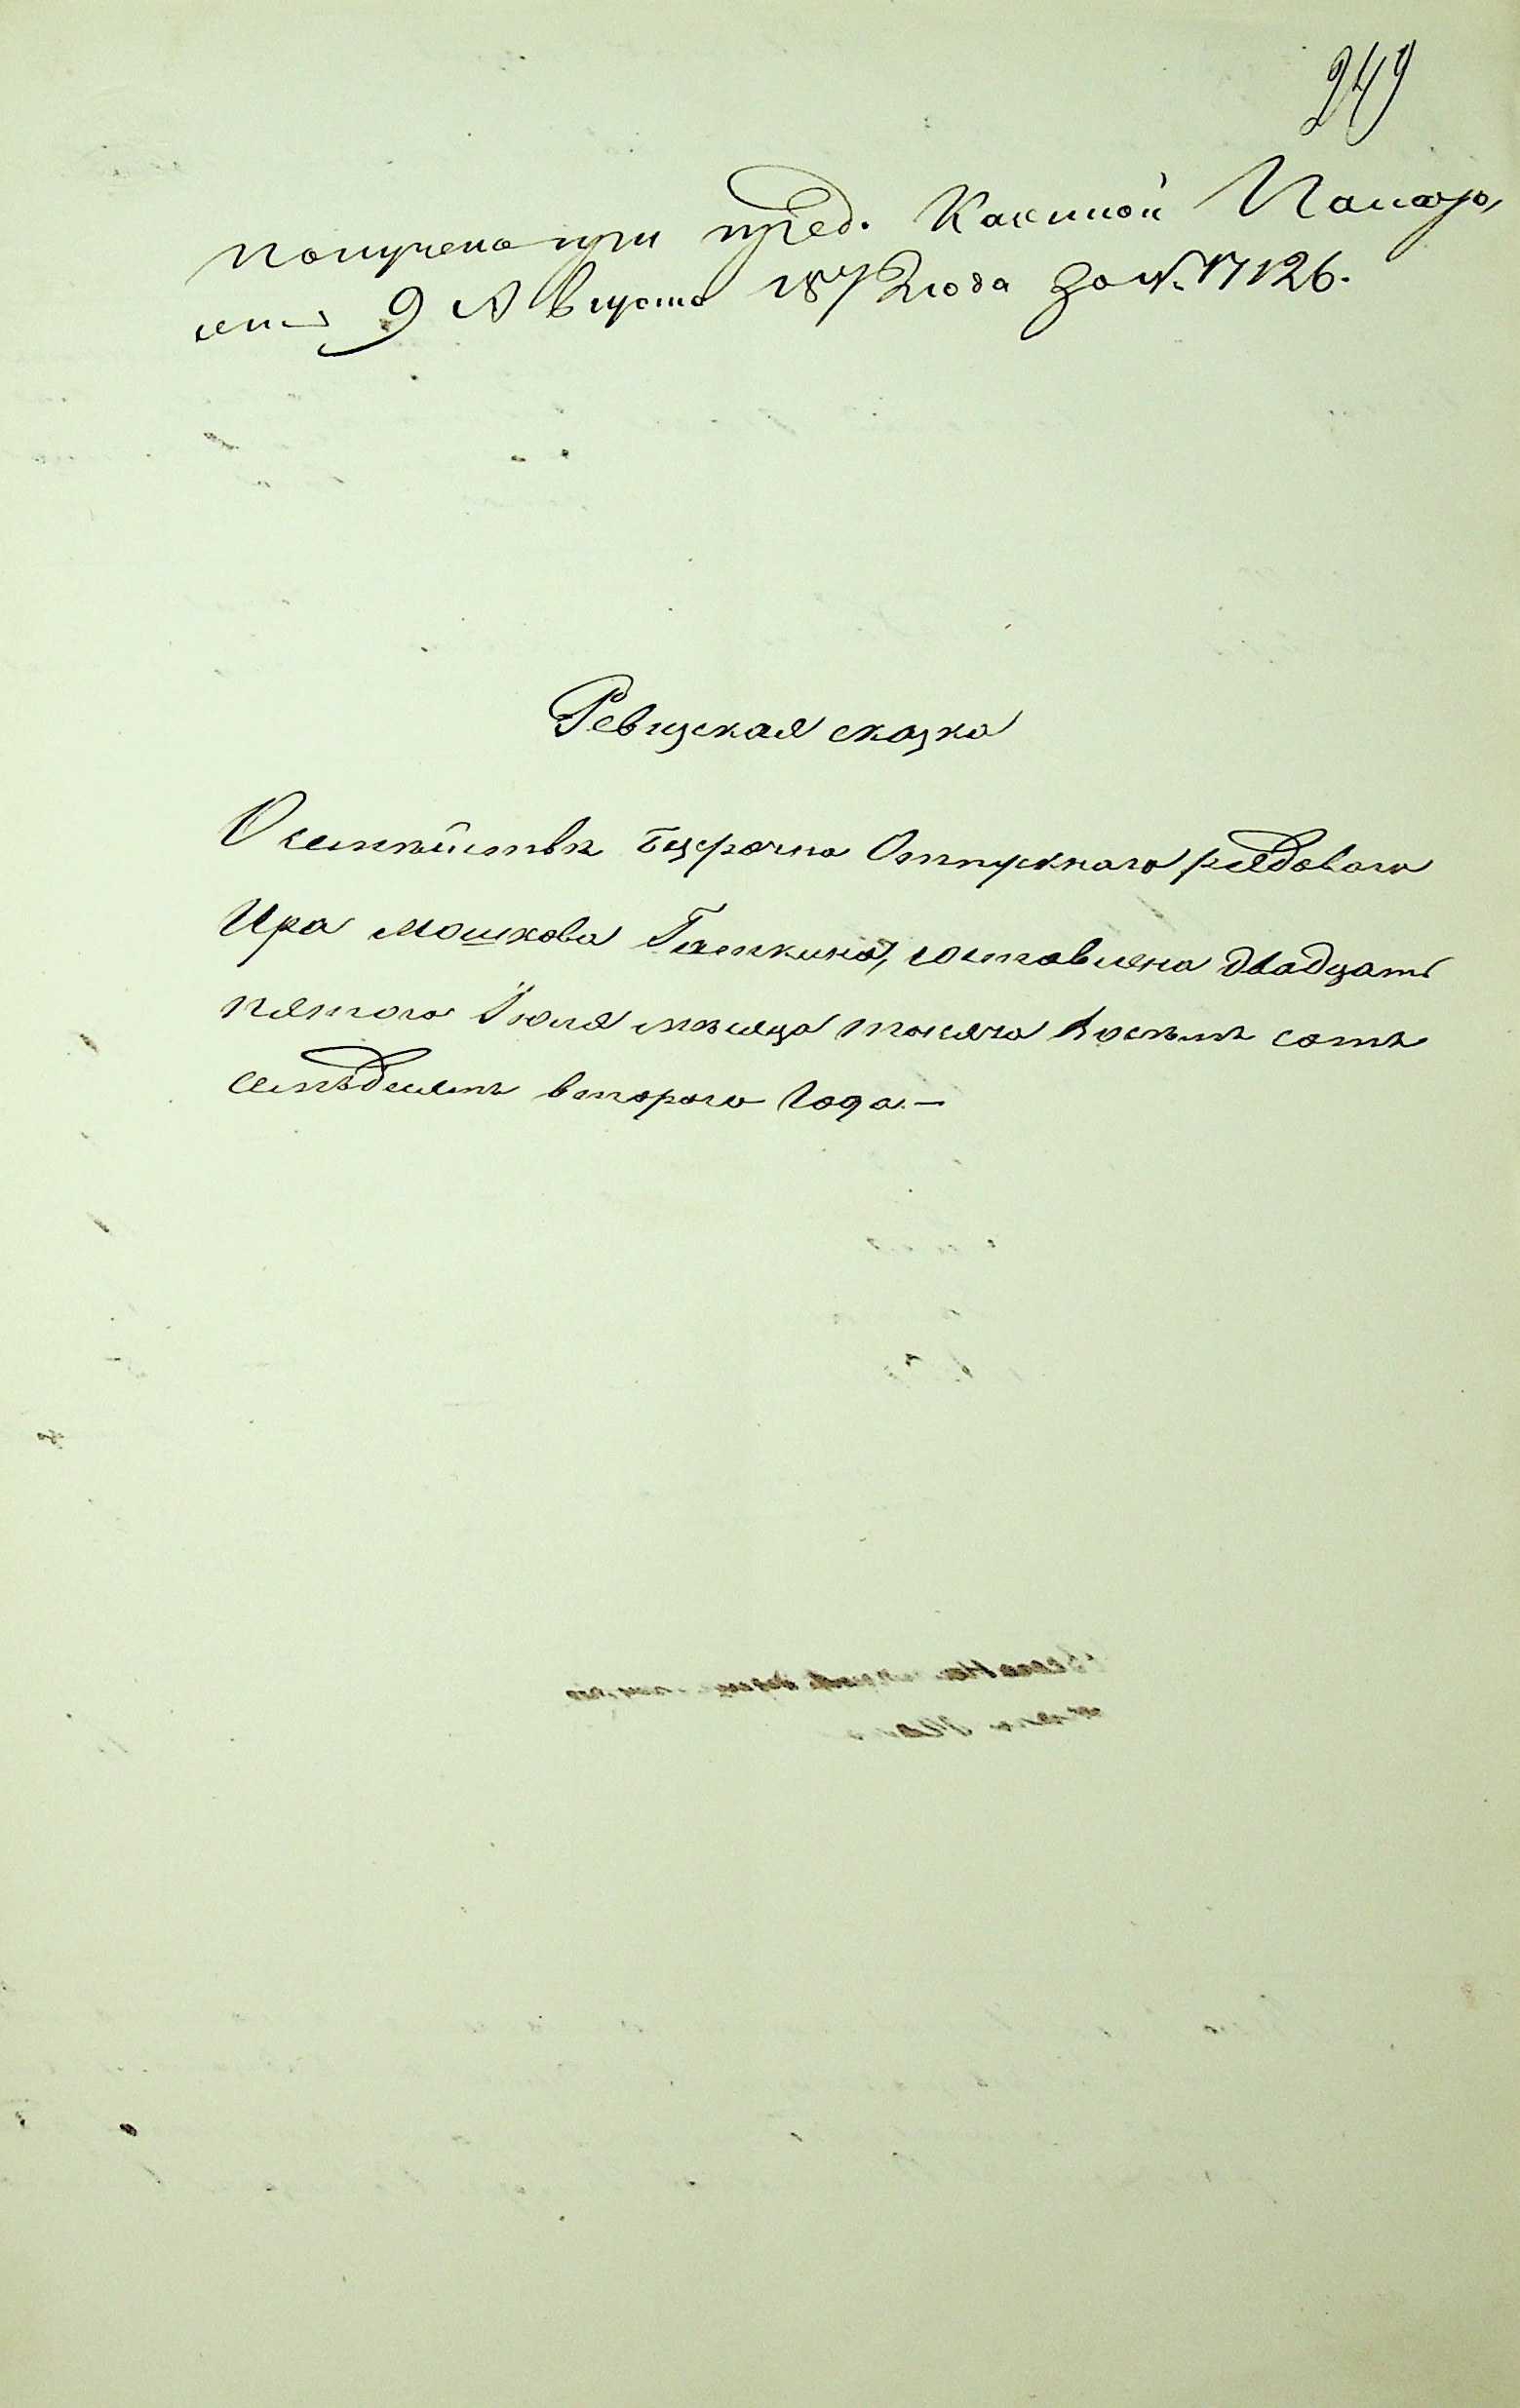 249
Получена при пред. Казенной Палаты
9 Августа 1872 года за № 17126.
Ревизская сказка
О семействѣ безсрочно Отпускнаго рядоваго
Ира Мошкова Гаткина, составлена двадцать
пятаго Іюля мѣсяца тысяча восемь сотъ
семьдесятъ втораго Года. —